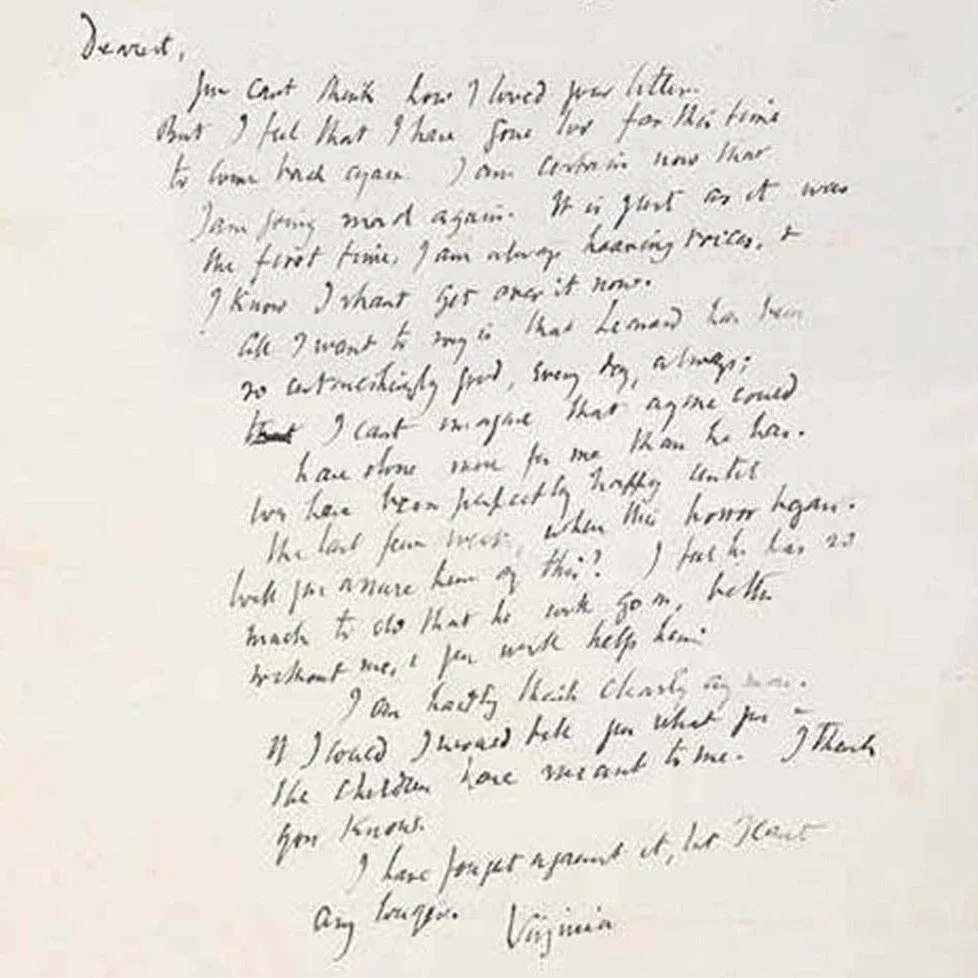 Dearest,
You cant think how I loved your letter.
But I feel that I have gone too far this time
to come back again. I am certain now that
I am going mad again. It is just as it was
the first time, I am always hearing voices, &
I know I shant get over it now.
All I want to say is that Leonard has been
so astonishingly good, every day, always;
that I cant imagine that anyone could
have done more for me than he has.
We have been perfectly happy until
the last few weeks, when this horror began.
Will you assure him of this? I feel he has so
much to do that he will go on, better
without me, & you will help him.
I can hardly think clearly any more.
If I could I would tell you what you &
the children have meant to me. I think
you know.
I have fought against it, but I cant
any longer. Virginia